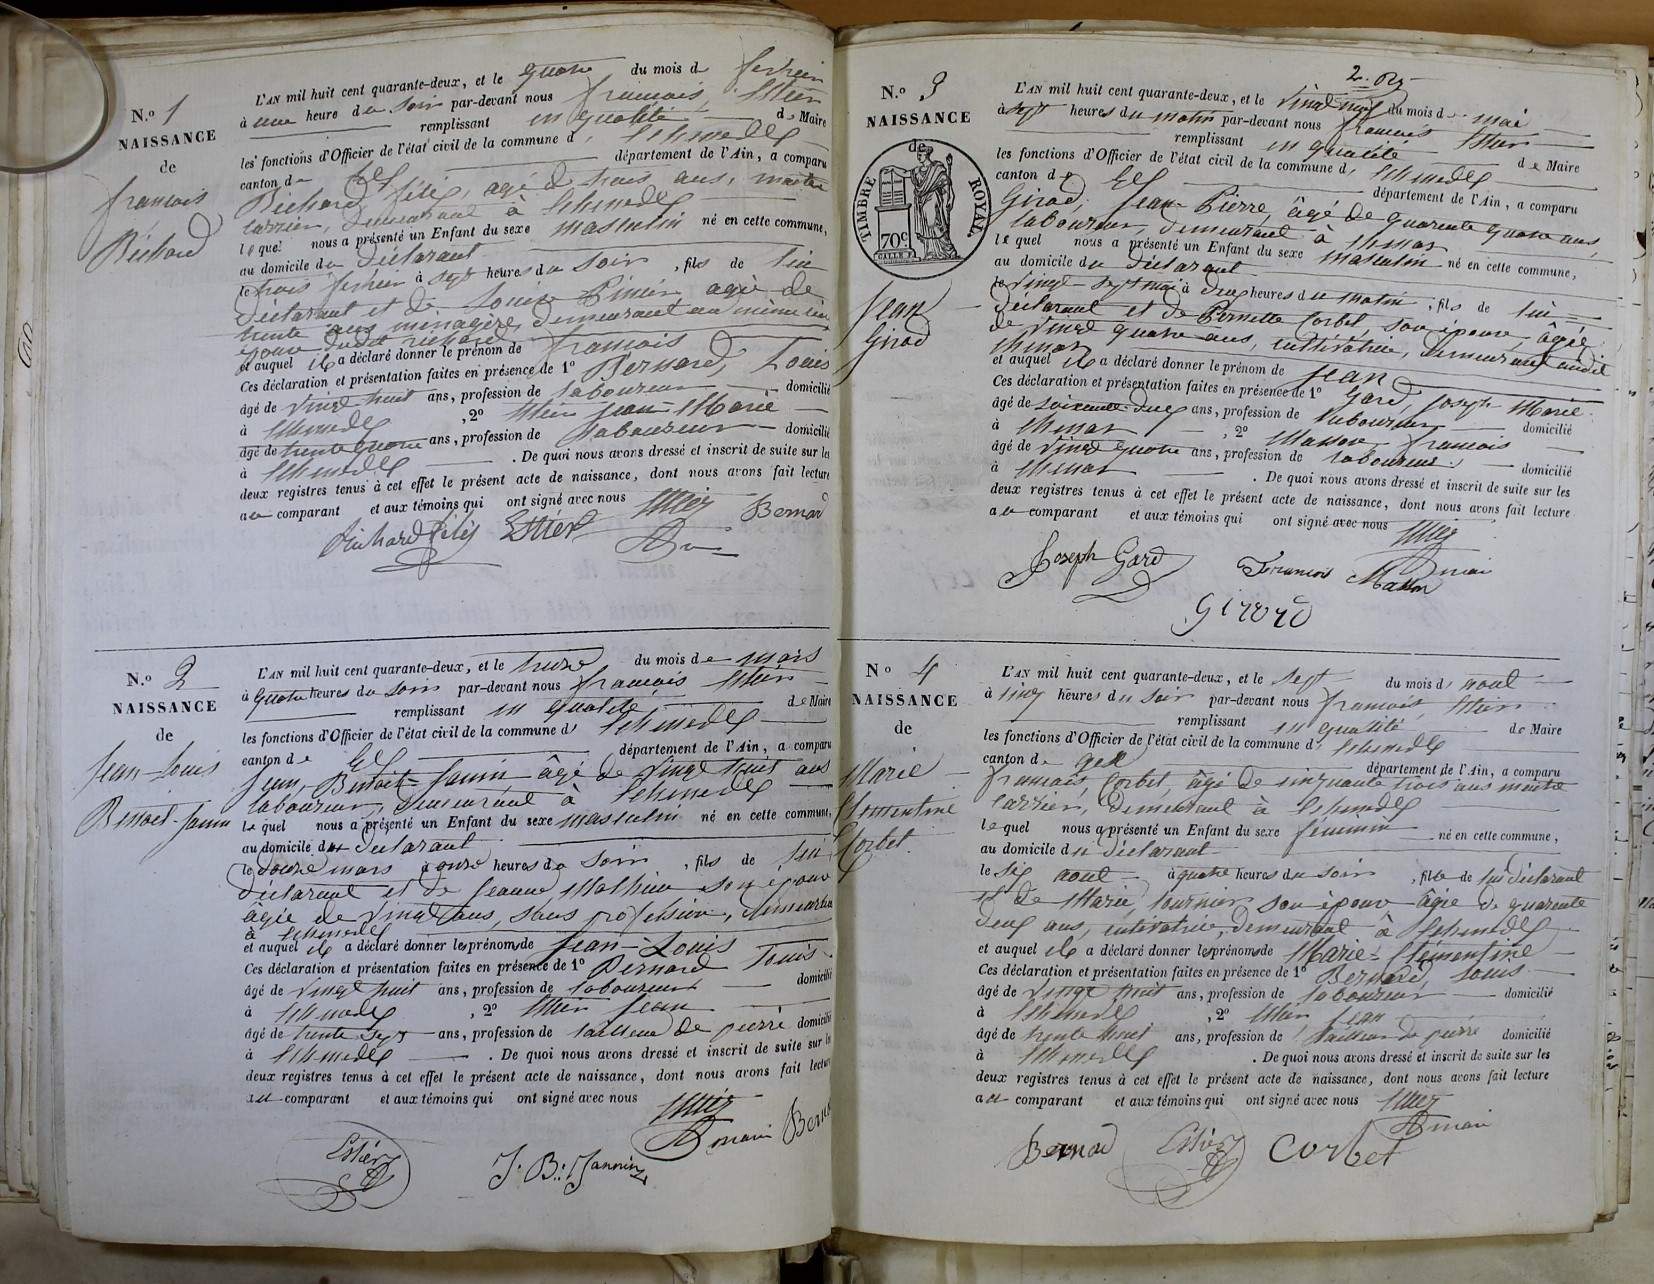 N.º 1
NAISSANCE
de
françois
Richard
L'AN mil huit cent quarante-deux, et le quatre du mois d fevrier
à une heure du soir par-devant nous françois
remplissant en qualité de Maire
les fonctions d'Officier de l'état civil de la commune d'Echenevex
canton de Gex département de l'Ain, a comparu
Richard félix, agé de ans, maitre
carrier, demeurant à Echenevex
lequel nous a présenté un Enfant du sexe masculin né en cette commune,
au domicile du déclarant
le trois fevrier à sept heures du soir, fils de lui
déclarant et de Louise agée de
trente ans ménagère, demeurant au même lieu
épouse dudit richard
et auquel il a déclaré donner le prénom de françois
Ces déclaration et présentation faites en présence de 1º Bernard, Louis
âgé de vingt huit ans, profession de laboureur domicilié
à Echenevex, 2º Jean-Marie
âgé de trente quatre ans, profession de laboureur domicilié
à Echenevex. De quoi nous avons dressé et inscrit de suite sur les
deux registres tenus à cet effet le présent acte de naissance, dont nous avons fait lecture
au comparant et aux témoins qui ont signé avec nous
Richard félix Bernard
N.º 2
NAISSANCE
de
Jean-Louis
Benoit-Janin
L'AN mil huit cent quarante-deux, et le treize du mois de mars
à quatre heures du soir par-devant nous françois
remplissant en qualité de Maire
les fonctions d'Officier de l'état civil de la commune d'Echenevex
canton de Gex département de l'Ain, a comparu
Jean, Benoit-Janin âgé de vingt huit ans
laboureur, demeurant à Echenevex
lequel nous a présenté un Enfant du sexe masculin né en cette commune,
au domicile du déclarant
le douze mars à onze heures du soir, fils de lui
déclarant et de Jeanne Mathieu son épouse
âgée de vingt ans, sans profession, demeurant
à Echenevex
et auquel il a déclaré donner les prénoms de Jean-Louis
Ces déclaration et présentation faites en présence de 1º Bernard Louis
âgé de vingt huit ans, profession de laboureur domicilié
à Echenevex, 2º Jean
âgé de trente sept ans, profession de tailleur de pierre domicilié
à Echenevex. De quoi nous avons dressé et inscrit de suite sur les
deux registres tenus à cet effet le présent acte de naissance, dont nous avons fait lecture
au comparant et aux témoins qui ont signé avec nous
J. B. Jannin
N.º 3
NAISSANCE
de
TIMBRE ROYAL.
70c
Jean
Girod
L'AN mil huit cent quarante-deux, et le vingt neuf du mois de mai
à sept heures du matin par-devant nous françois
remplissant en qualité de Maire
les fonctions d'Officier de l'état civil de la commune d'Echenevex
canton de Gex département de l'Ain, a comparu
Girod, Jean-Pierre, âgé de quarente quatre ans,
laboureur, demeurant à Chenaz
lequel nous a présenté un Enfant du sexe masculin né en cette commune,
au domicile du déclarant
le vingt-sept mai à deux heures du matin, fils de lui
déclarant et de Pernette Corbet, son épouse, âgée
de vingt quatre ans, cultivatrice, demeurant audit
Chenaz
et auquel il a déclaré donner le prénom de Jean
Ces déclaration et présentation faites en présence de 1º Gard, Joseph Marie
âgé de soixante-deux ans, profession de laboureur domicilié
à Chenaz, 2º Masson françois
âgé de vingt quatre ans, profession de laboureur domicilié
à Chenaz. De quoi nous avons dressé et inscrit de suite sur les
deux registres tenus à cet effet le présent acte de naissance, dont nous avons fait lecture
au comparant et aux témoins qui ont signé avec nous
Joseph Gard François Masson
Girord
N.º 4
NAISSANCE
de
Marie
Clementine
Corbet
L'AN mil huit cent quarante-deux, et le sept du mois d'aout
à cinq heures du soir par-devant nous françois
remplissant en qualité de Maire
les fonctions d'Officier de l'état civil de la commune d'Echenevex
canton de gex département de l'Ain, a comparu
françois Corbet, âgé de cinquante trois ans maitre
carrier, demeurant à Echenevex
lequel nous a présenté un Enfant du sexe féminin né en cette commune,
au domicile du déclarant
le six aout à quatre heures du soir, fille de lui déclarant
et de Marie, fournier son épouse âgée de quarente
deux ans, cultivatrice, demeurant à Echenevex
et auquel il a déclaré donner les prénoms de Marie-Clémentine
Ces déclaration et présentation faites en présence de 1º Bernard, Louis
âgé de vingt huit ans, profession de laboureur domicilié
à Echenevex, 2º Jean
âgé de trente huit ans, profession de tailleur de pierre domicilié
à Echenevex. De quoi nous avons dressé et inscrit de suite sur les
deux registres tenus à cet effet le présent acte de naissance, dont nous avons fait lecture
au comparant et aux témoins qui ont signé avec nous
Bernard Corbet